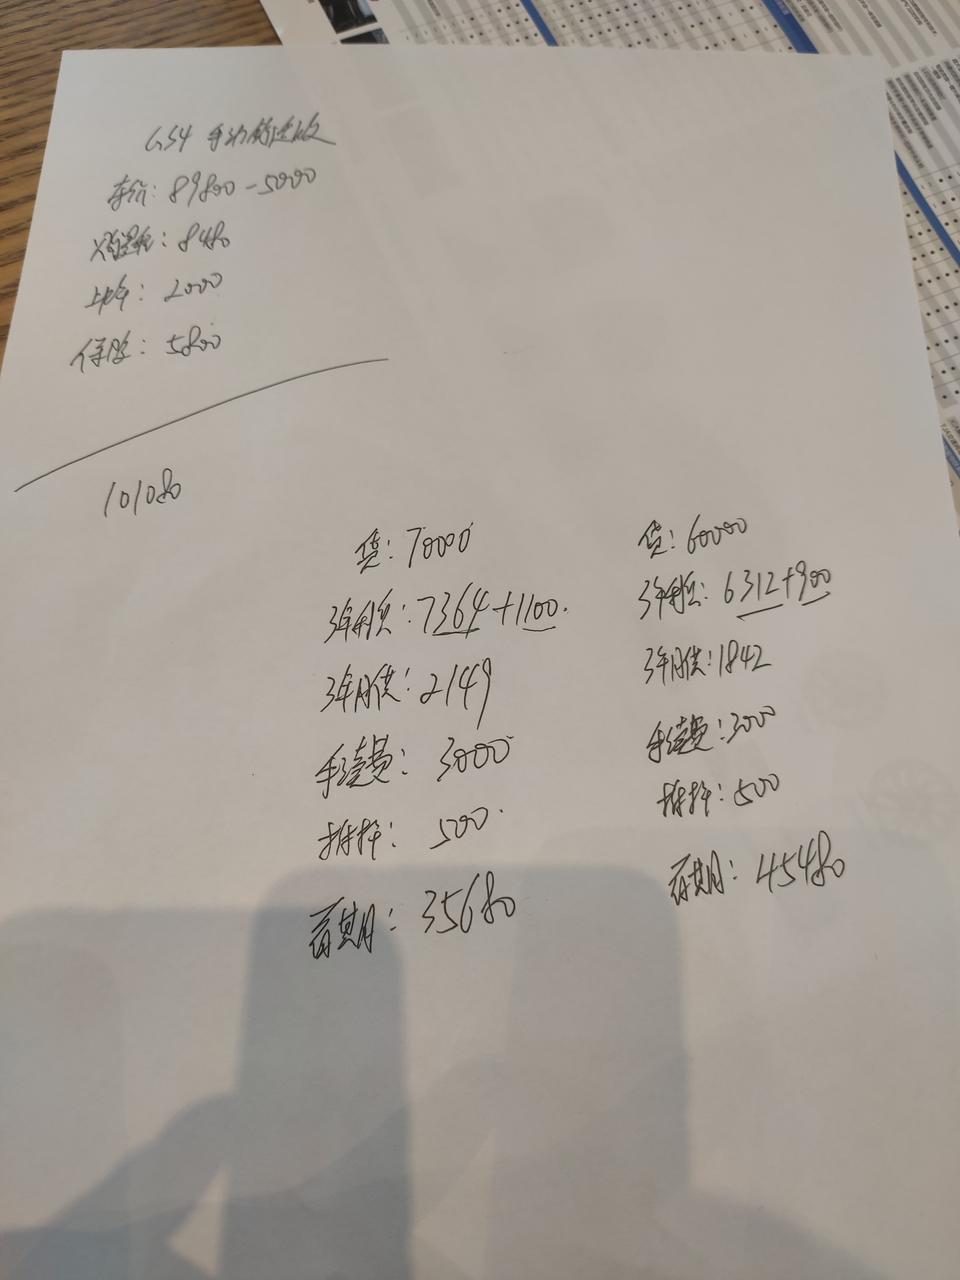 GS4 手动精选版
车价：89800-5000
购置税：8480
上牌：2000
保险：5800
101080
贷：70000
3年利息：7364+1100.
3年月供：2149
手续费：3000
抵押：500
首期：35680
贷：60000
3年利息：6312+900
3年月供：1842
手续费：3000
抵押：500
首期：45480